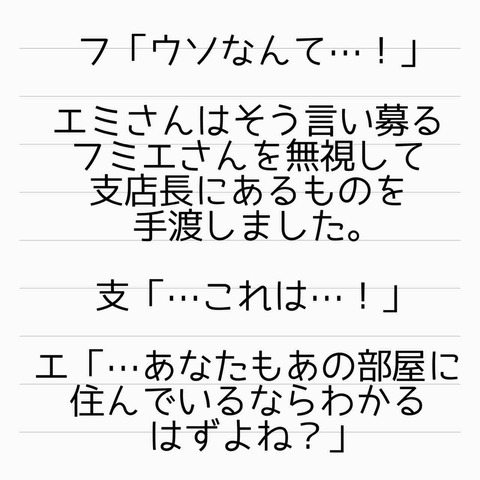 フ「ウソなんて…！」
エミさんはそう言い募る
フミエさんを無視して
支店長にあるものを
手渡しました。
支「…これは…！」
エ「…あなたもあの部屋に
住んでいるならわかる
はずよね？」